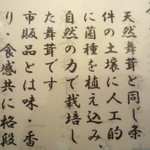 天然舞茸と同じ条
件の土壌に人工的
に菌種を植え込み、
自然の力で栽培し
た舞茸です
市販品とは味・香
り・食感共に格段